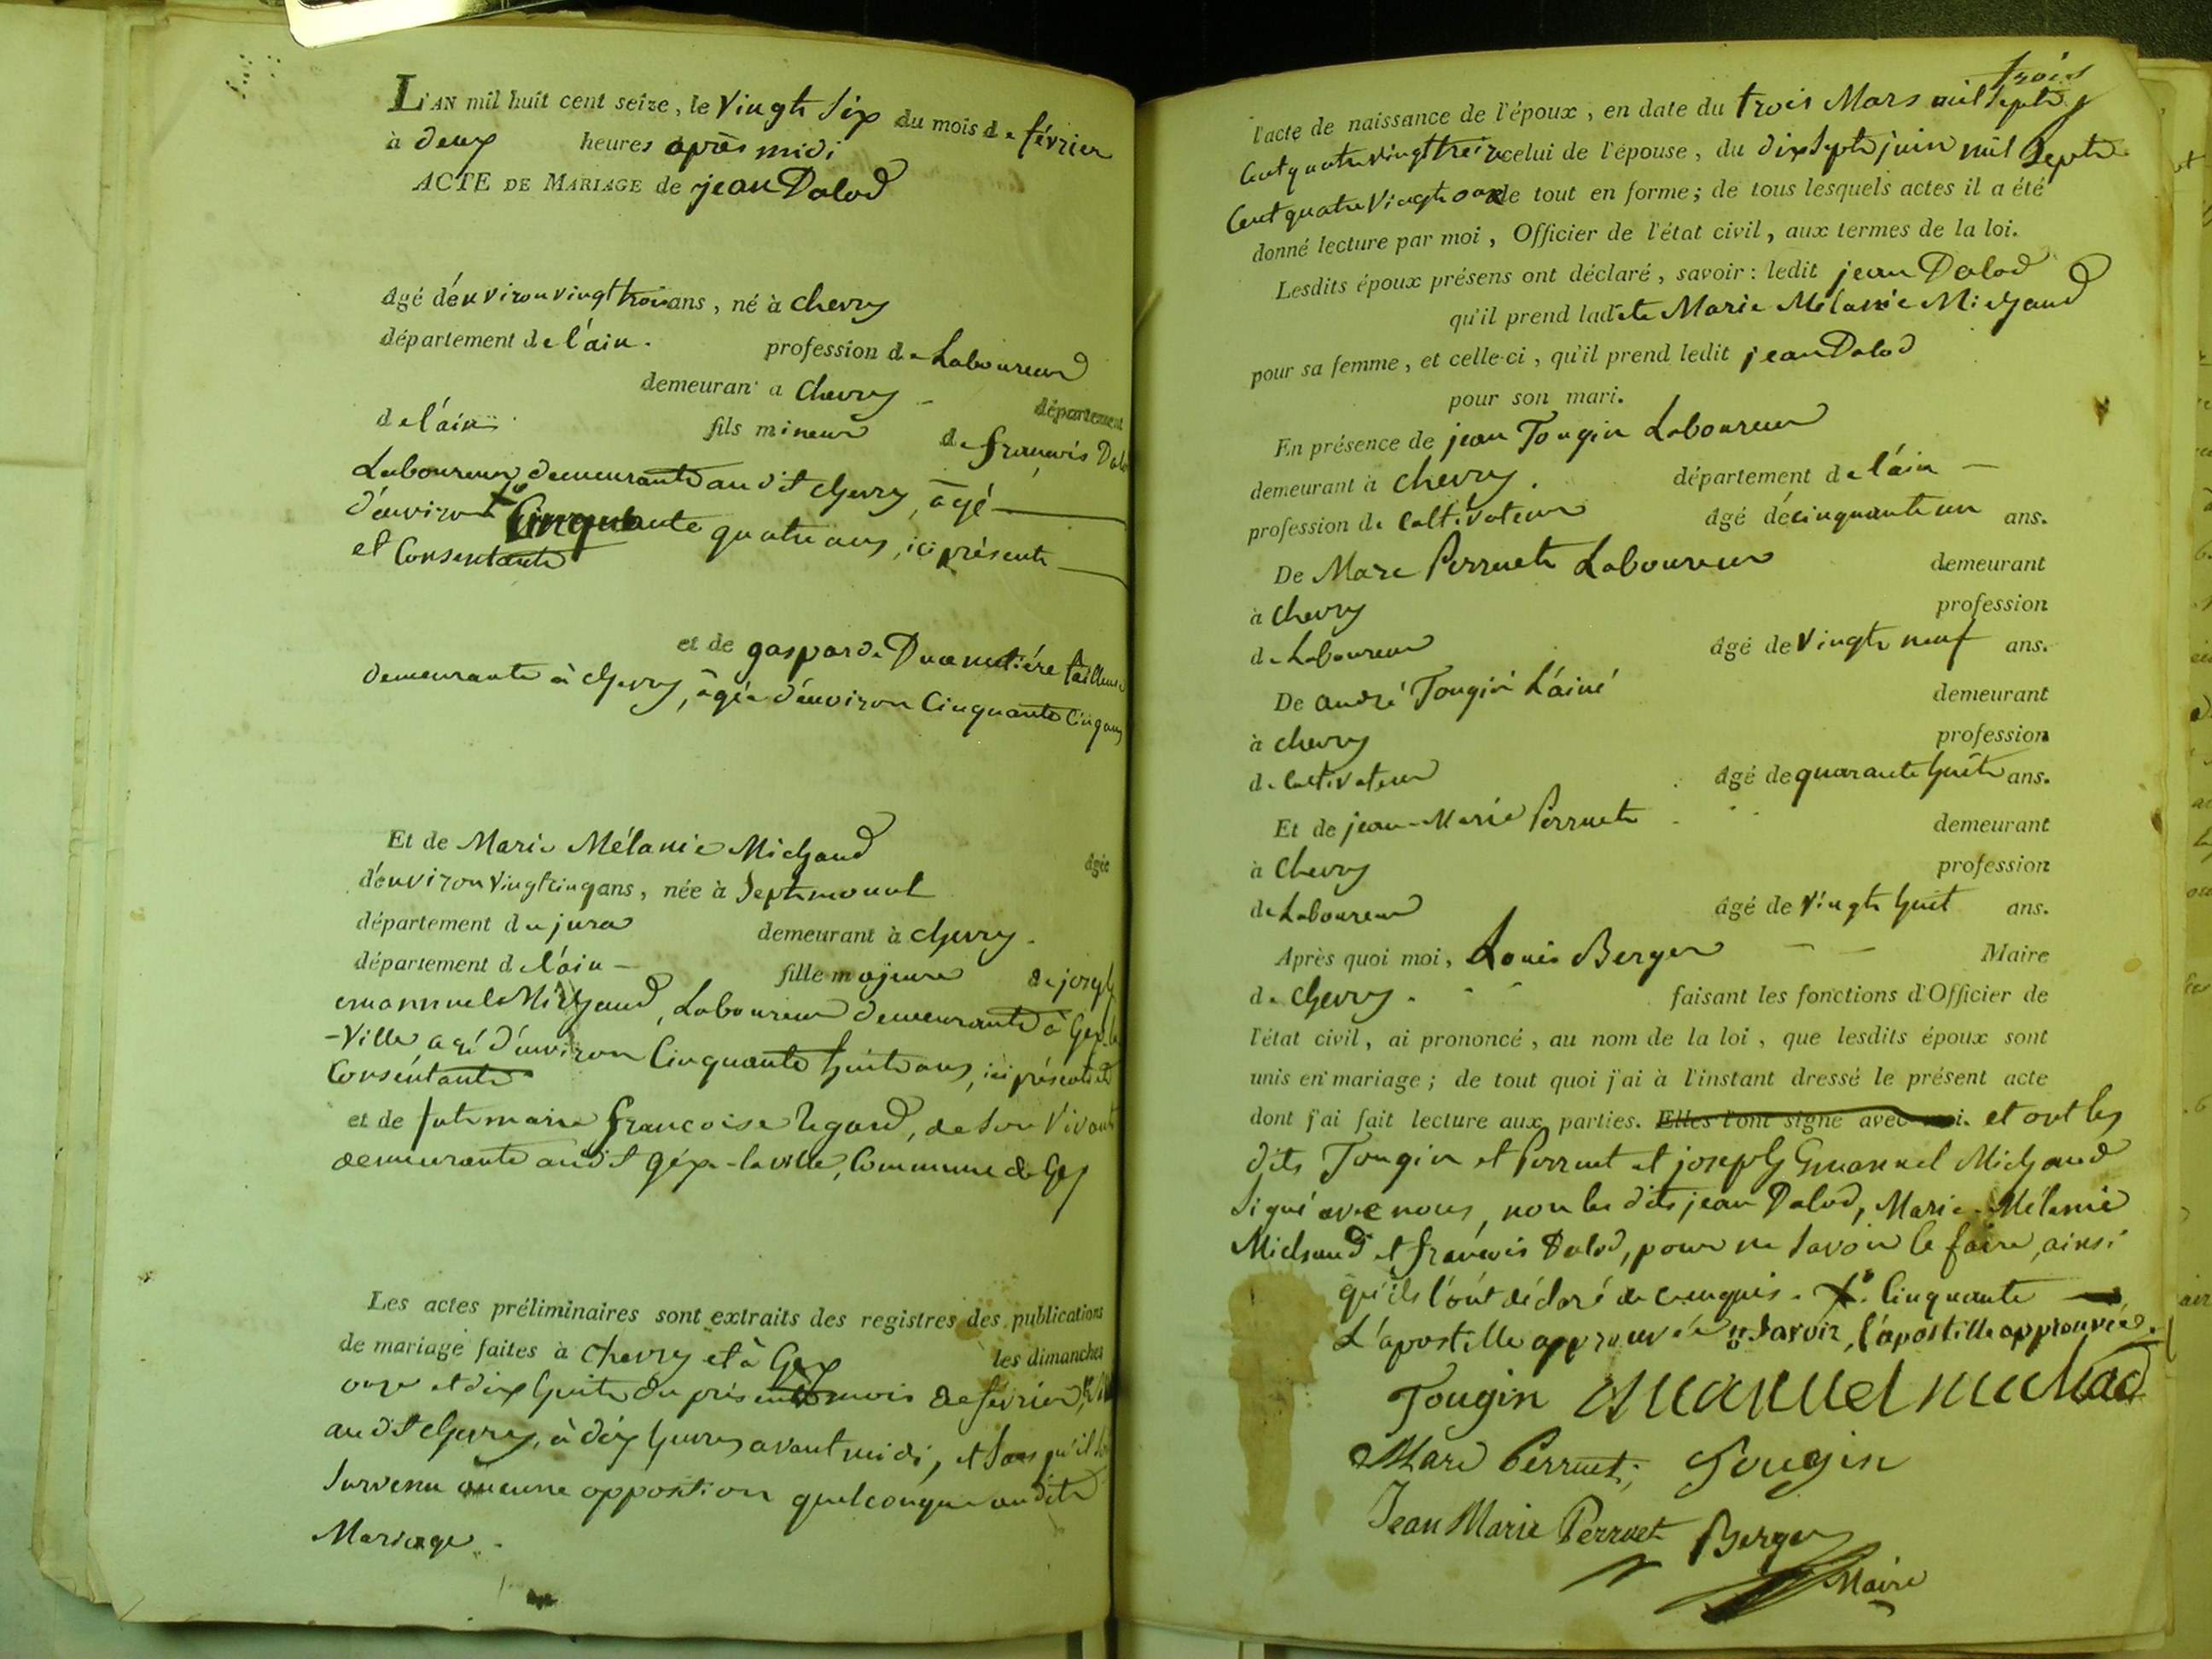 L'AN mil huit cent seize, le vingt six du mois de février
à deux heures après midi
ACTE DE MARIAGE de jean Dalod
âgé d'environ vingt trois ans, né à chevry
département de l'ain. profession de Laboureur
demeurant à chevry - département
de l'ain fils mineur de françois Dalo
Laboureur demeurante au dit chevry, âgé
d'environ Cinquante quatre ans, ici présente
et Consentante
et de gasparde tailleuse
demeurante à chevry, âgée d'environ Cinquante Cinq ans
Et de Marie Mélanie Michaud âgée
d'environ vingt cinq ans, née à Septmoncel
département du jura demeurant à chevry.
département de l'ain - fille majeure de joseph
emannuel Michaud, Laboureur demeurante à Gex la
-Ville, agé d'environ Cinquante huite ans, ici présent et
Consentante
et de fute marie françoise Regard, de son Vivant
demeurante audit géx-la ville, Commune de Gex
Les actes préliminaires sont extraits des registres des publications
de mariage faites à Chevry et à Gex les dimanches
onze et dix huite du présent mois de février,
au dit chevry, à dix heures avant midi, et sans qu'il soi
survenu aucune opposition quelconque audite
Mariage.
trois
l'acte de naissance de l'époux, en date du trois Mars mil septe
Cent quatre vingt treize celui de l'épouse, du dix septe juin mil septe
Cent quatre Vingt onze le tout en forme; de tous lesquels actes il a été
donné lecture par moi, Officier de l'état civil, aux termes de la loi.
Lesdits époux présens ont déclaré, savoir: ledit jean Dalod
qu'il prend ladite Marie Mélanie Michaud
pour sa femme, et celle-ci, qu'il prend ledit jean Dalod
pour son mari.
En présence de jean Tougin Laboureur
demeurant à chevry. département de l'ain -
profession de Cultivateur âgé de cinquante un ans.
De Marc Perruete Laboureur demeurant
à chevry profession
de Laboureur âgé de Vingte neuf ans.
De andré Tougin L'ainé demeurant
à chevry profession
de Cultivateur âgé de quarante huite ans.
Et de jean-Marie Perruete demeurant
à Chevry profession
de Laboureur âgé de Vingte huit ans.
Après quoi moi, Louis Berger Maire
de Chevry. faisant les fonctions d'Officier de
l'état civil, ai prononcé, au nom de la loi, que lesdits époux sont
unis en mariage; de tout quoi j'ai à l'instant dressé le présent acte
dont j'ai fait lecture aux parties. Elles l'ont signé avec moi. et ont les
dits Tougin et Perruet et joseph Emannuel Michaud
signé avec nous, non les dits jean Dalod, Marie-Mélanie
Michaud et françois Dalod, pour ne savoir le faire, ainsi
qu'ils l'ont déclaré de ce enquis. Cinquante
L'apostille approuvée savoir, l'apostille approuvée.
Tougin emanuel michad
Marc Perruet; Tougin
Jean Marie Perruet Berger
Maire